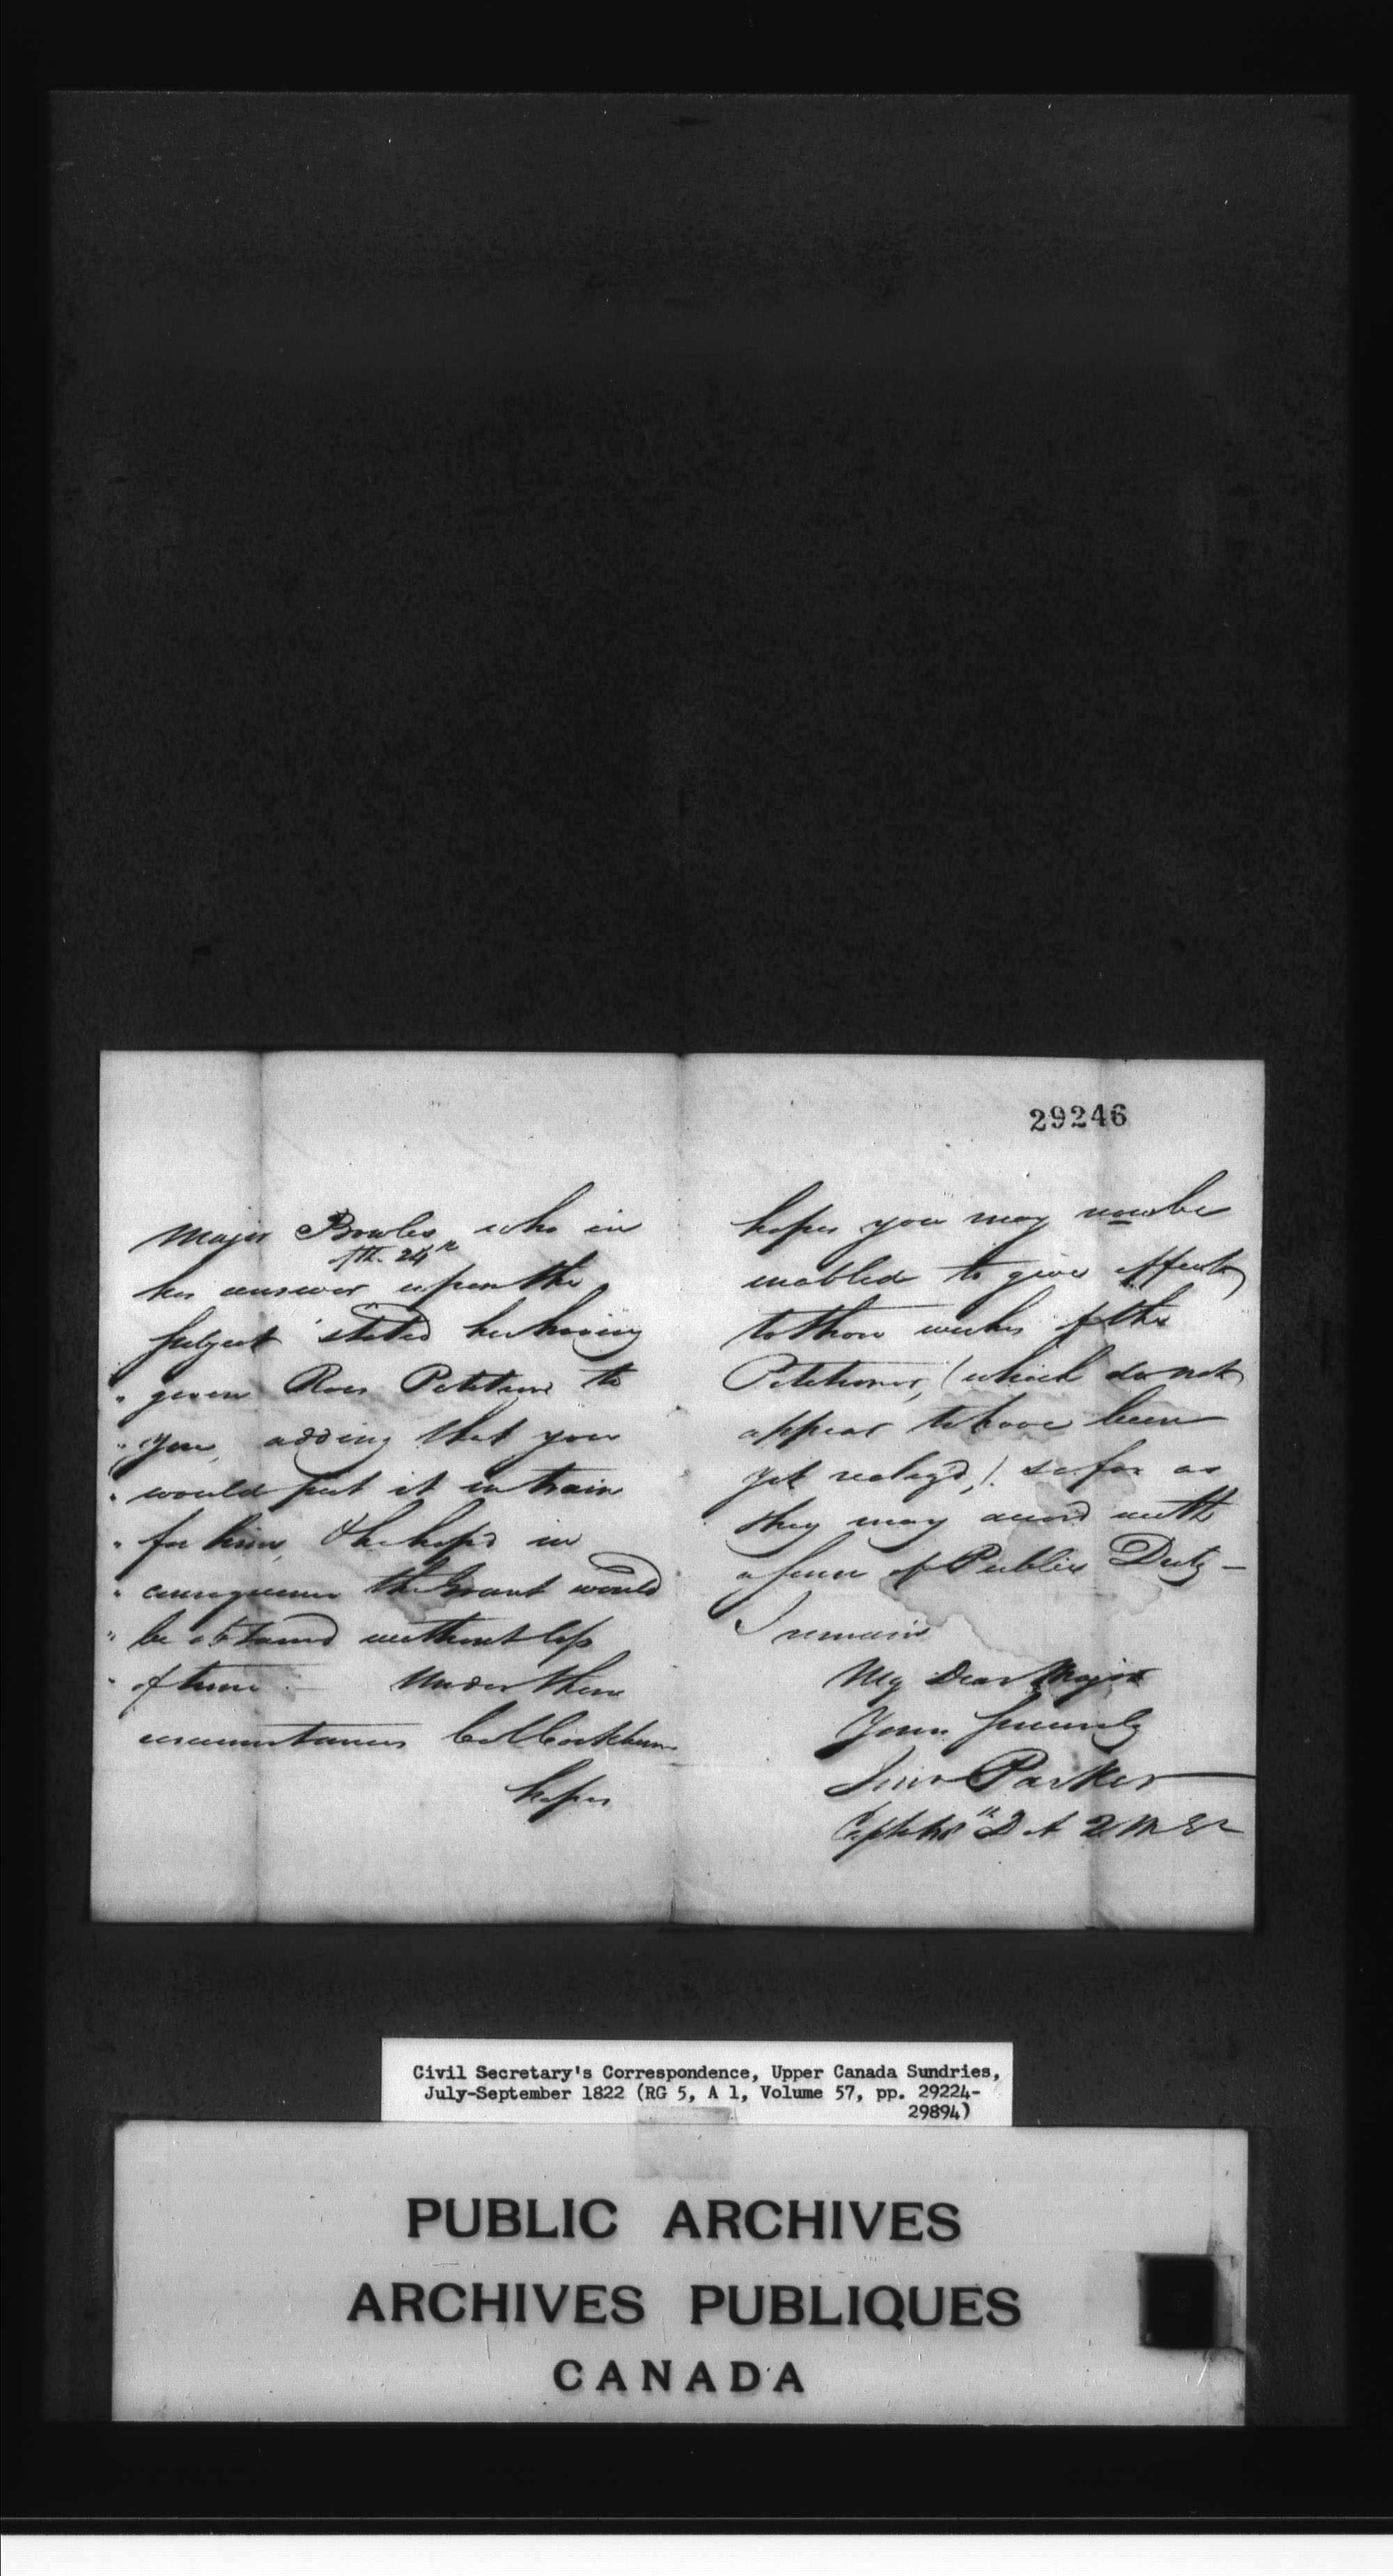 Major Bowles who in
24th
his answer upon the
subject "stated his having
" given Ross Petition to
" you, adding that you
" would put it in train
" for him, & he hoped in
" consequence the Grant would
" be obtained without loss
" of time — Under these
circumstances Col Cockburn
hopes
29246
hopes you may now be
enabled to give effect
to those wishes of the
Petitioner, (which do not
appear to have been
yet realiz'd,) so far as
they may accord with
a sense of Public Duty —
I remain
My Dear Major
Yours Sincerely
Parker
Capt D A Q M Gl
Civil Secretary's Correspondence, Upper Canada Sundries,
July-September 1822 (RG 5, A 1, Volume 57, pp. 29224-
29894)
PUBLIC ARCHIVES
ARCHIVES PUBLIQUES
CANADA